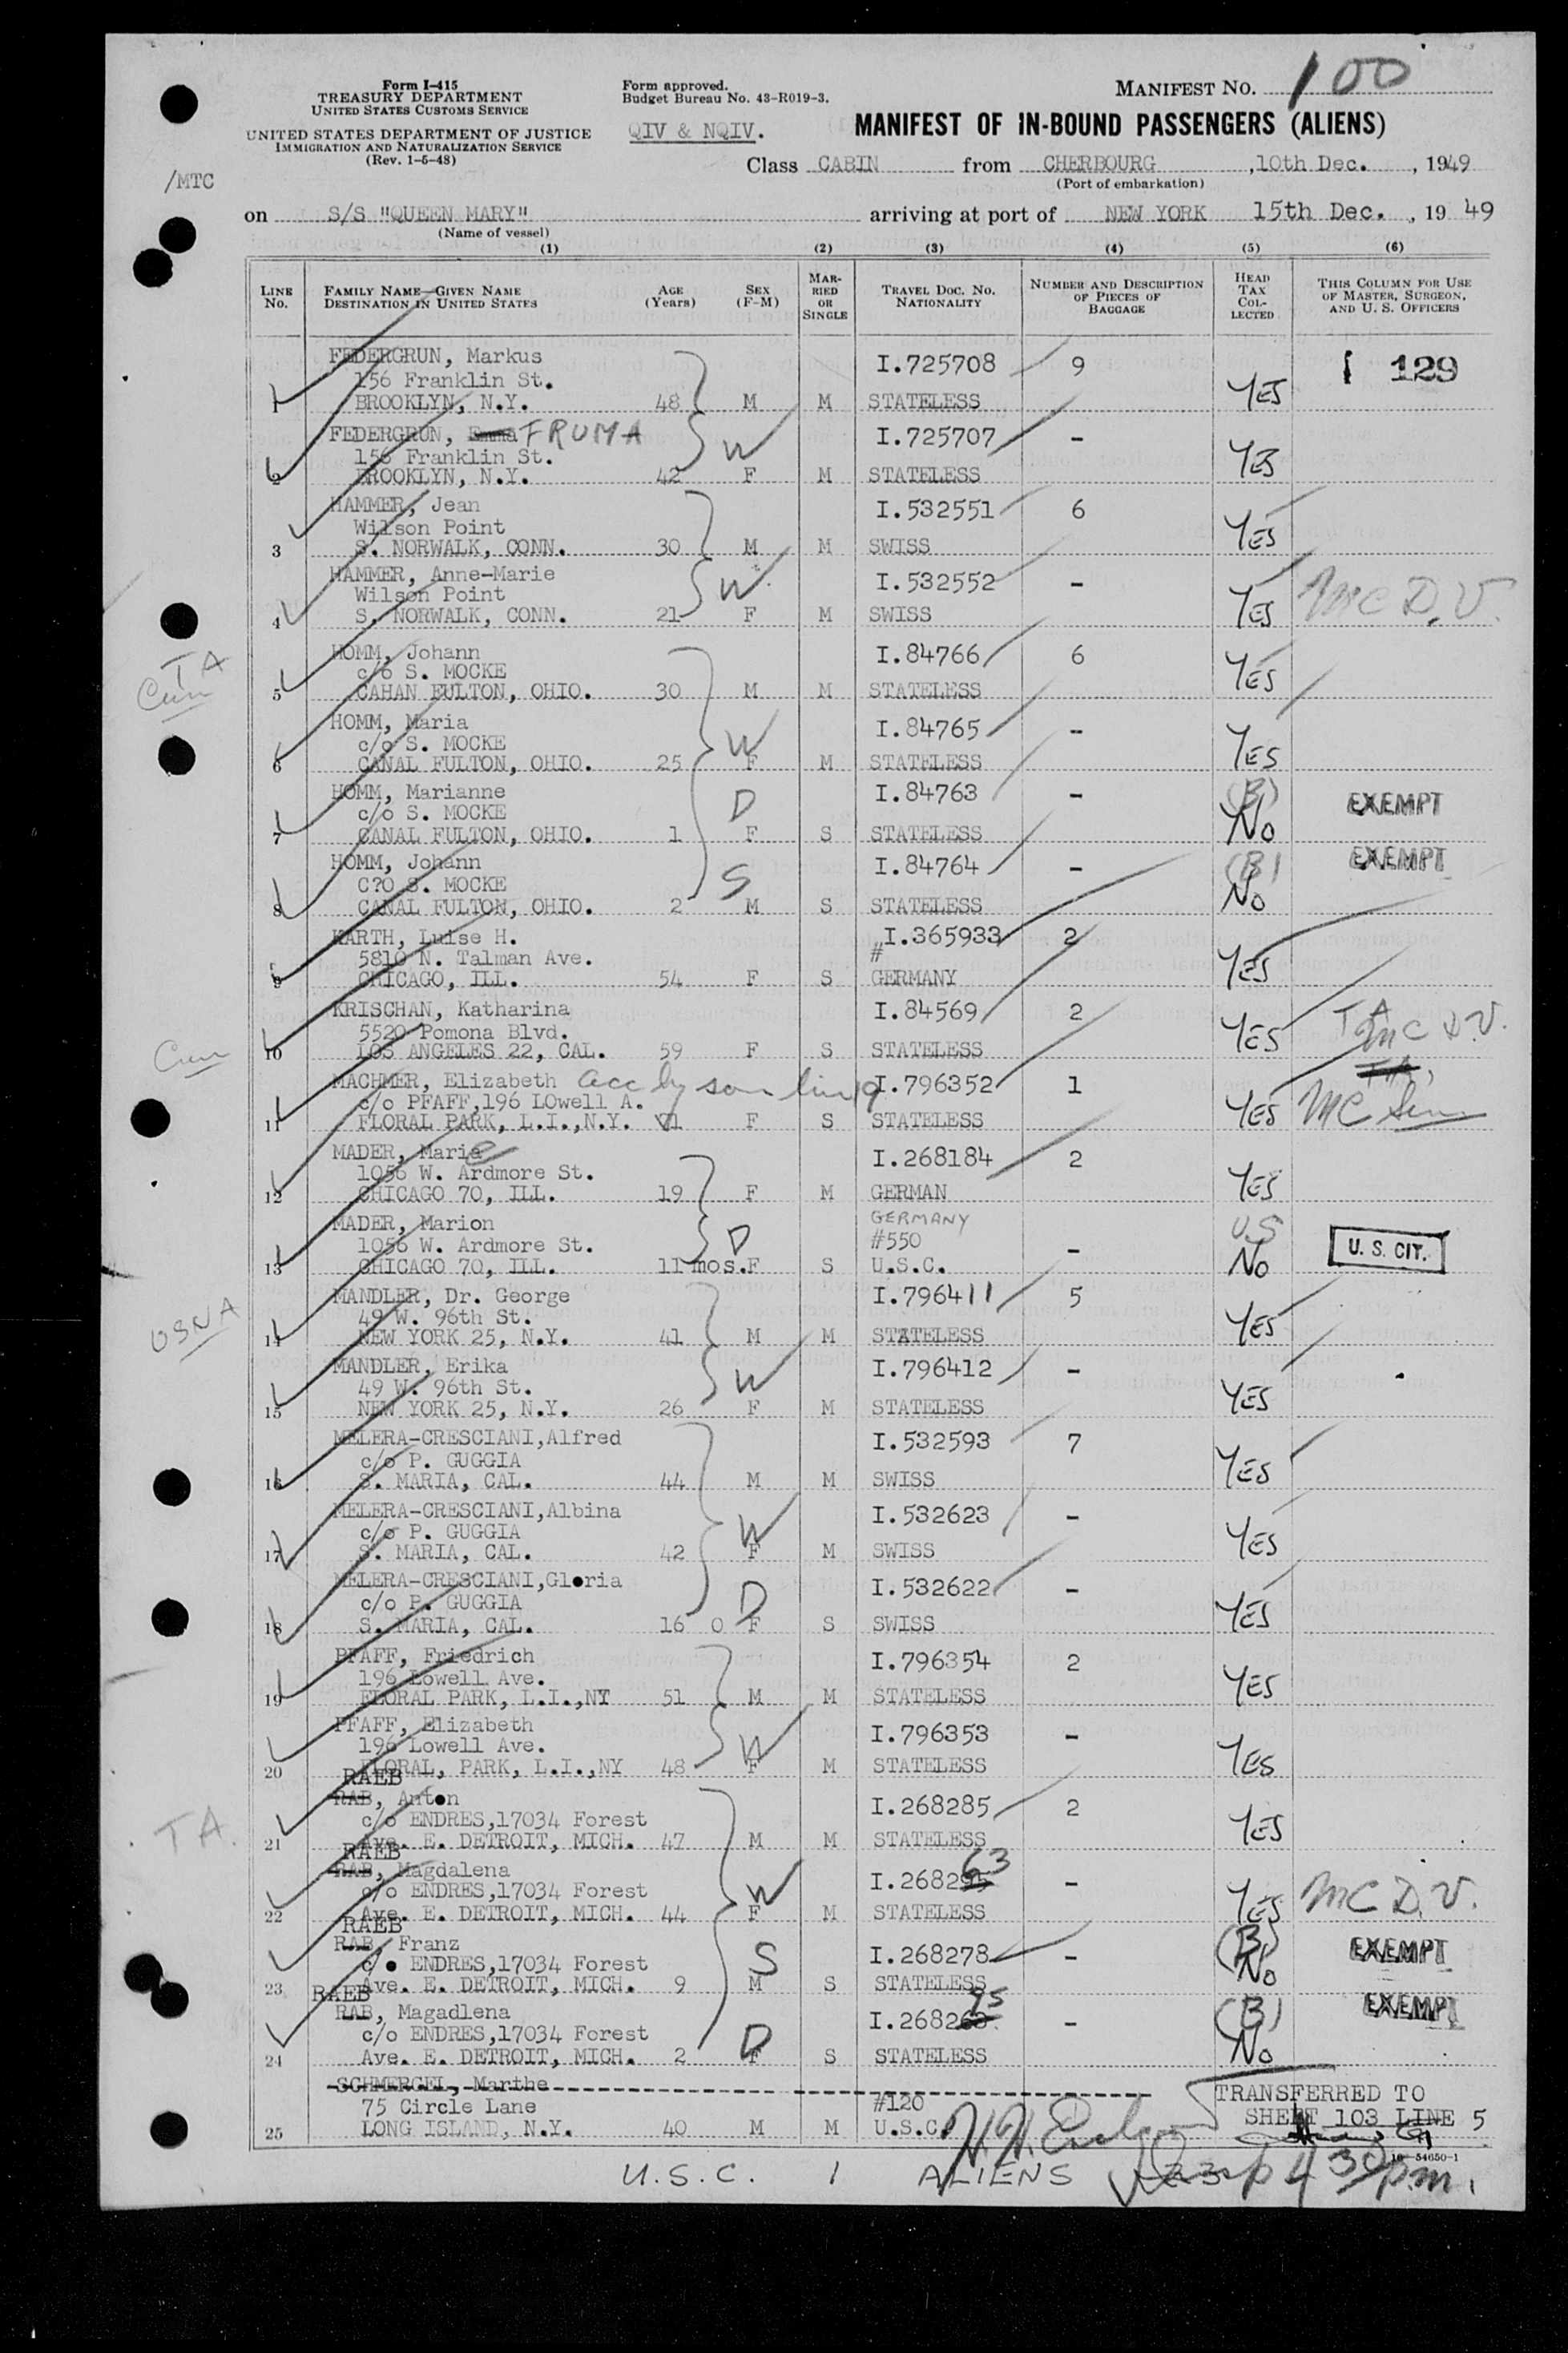 Form I-415
TREASURY DEPARTMENT
UNITED STATES CUSTOMS SERVICE
UNITED STATES DEPARTMENT OF JUSTICE
IMMIGRATION AND NATURALIZATION SERVICE
(Rev. 1-5-48)
Form approved.
Budget Bureau No. 43-R019-3.
QIV & NQIV.
MANIFEST NO. 100
MANIFEST OF IN-BOUND PASSENGERS (ALIENS)
Class CABIN from CHERBOURG, 10th Dec., 1949
(Port of embarkation)
/MTC
on S/S "QUEEN MARY" arriving at port of NEW YORK 15th Dec., 19 49
(Name of vessel)
(1) (2) (3) (4) (5) (6)
LINE NO. FAMILY NAME—GIVEN NAME DESTINATION IN UNITED STATES AGE (YEARS) SEX (F-M) MARRIED OR SINGLE TRAVEL DOC. NO. NATIONALITY NUMBER AND DESCRIPTION OF PIECES OF BAGGAGE HEAD TAX COLLECTED THIS COLUMN FOR USE OF MASTER, SURGEON, AND U. S. OFFICERS
FEDERGRUN, Markus I.725708 9 129
156 Franklin St.
1 BROOKLYN, N.Y. 48 M M STATELESS YES
FEDERGRUN, FRUMA I.725707 -
156 Franklin St. W
2 BROOKLYN, N.Y. 42 F M STATELESS YES
HAMMER, Jean I.532551 6
Wilson Point
3 S. NORWALK, CONN. 30 M M SWISS YES
HAMMER, Anne-Marie I.532552 -
Wilson Point W MC D.V.
4 S. NORWALK, CONN. 21 F M SWISS YES
HOMM, Johann I.84766 6
TA c/o S. MOCKE
5 CAHAN FULTON, OHIO. 30 M M STATELESS YES
HOMM, Maria I.84765 -
c/o S. MOCKE W
6 CANAL FULTON, OHIO. 25 F M STATELESS YES
HOMM, Marianne I.84763 - (B) EXEMPT
c/o S. MOCKE D
7 CANAL FULTON, OHIO. 1 F S STATELESS No
HOMM, Johann I.84764 - (B) EXEMPT
C?O S. MOCKE S
8 CANAL FULTON, OHIO. 2 M S STATELESS No
KARTH, Luise H. #I.365933 2
5810 N. Talman Ave.
9 CHICAGO, ILL. 54 F S GERMANY YES
KRISCHAN, Katharina I.84569 2 TA
5520 Pomona Blvd. MC D.V.
10 LOS ANGELES 22, CAL. 59 F S STATELESS YES
MACHMER, Elizabeth acc by son I.796352 1 T.A.
c/o PFAFF,196 LOwell A.
11 FLORAL PARK, L.I.,N.Y. 71 F S STATELESS YES MC Sen
MADER, Marie I.268184 2
1056 W. Ardmore St.
12 CHICAGO 70, ILL. 19 F M GERMAN YES
MADER, Marion GERMANY US
1056 W. Ardmore St. D #550 - U. S. CIT.
13 CHICAGO 70, ILL. 11 mos. F S U.S.C. No
MANDLER, Dr. George I.796411 5
USNA 49 W. 96th St.
14 NEW YORK 25, N.Y. 41 M M STATELESS YES
MANDLER, Erika I.796412 -
49 W. 96th St. W
15 NEW YORK 25, N.Y. 26 F M STATELESS YES
MELERA-CRESCIANI,Alfred I.532593 7
c/o P. GUGGIA
16 S. MARIA, CAL. 44 M M SWISS YES
MELERA-CRESCIANI,Albina I.532623 -
c/o P. GUGGIA W
17 S. MARIA, CAL. 42 F M SWISS YES
MELERA-CRESCIANI,Gloria I.532622 -
c/o P. GUGGIA D
18 S. MARIA, CAL. 16 0 F S SWISS YES
PFAFF, Friedrich I.796354 2
196 Lowell Ave.
19 FLORAL PARK, L.I.,NY 51 M M STATELESS YES
PFAFF, Elizabeth I.796353 -
196 Lowell Ave. W
20 FLORAL, PARK, L.I.,NY 48 F M STATELESS YES
RAEB
RAB, Anton I.268285 2
TA. c/o ENDRES,17034 Forest
21 Ave. E. DETROIT, MICH. 47 M M STATELESS YES
RAEB 63
RAB, Magdalena I.268295 -
c/o ENDRES,17034 Forest W MC D.V.
22 Ave. E. DETROIT, MICH. 44 F M STATELESS YES
RAEB
RAB, Franz I.268278 - (B) EXEMPT
c/o ENDRES,17034 Forest S
23 Ave. E. DETROIT, MICH. 9 M S STATELESS No
RAEB 95
RAB, Magadlena I.268263 - (B) EXEMPT
c/o ENDRES,17034 Forest D
24 Ave. E. DETROIT, MICH. 2 F S STATELESS No
SCHMERGEL, Marthe TRANSFERRED TO
75 Circle Lane #120 SHEET 103 LINE 5
25 LONG ISLAND, N.Y. 40 M M U.S.C.
16—54650-1
U.S.C. 1 ALIENS 23 4 30 p.m.